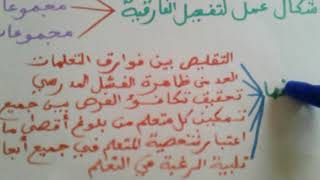 أشكال عمل لتفعيل الفارقية
مجموعا
مجموعات
التقليص بين فوارق التعلمات
الحد من ظاهرة الفشل المدرسي
تحقيق تكافؤ الفرص بين جميع
تمكين كل متعلم من بلوغ أقصى ما
اعتبار شخصية المتعلم في جميع أبعا
تلبية الرغبة في التعلم